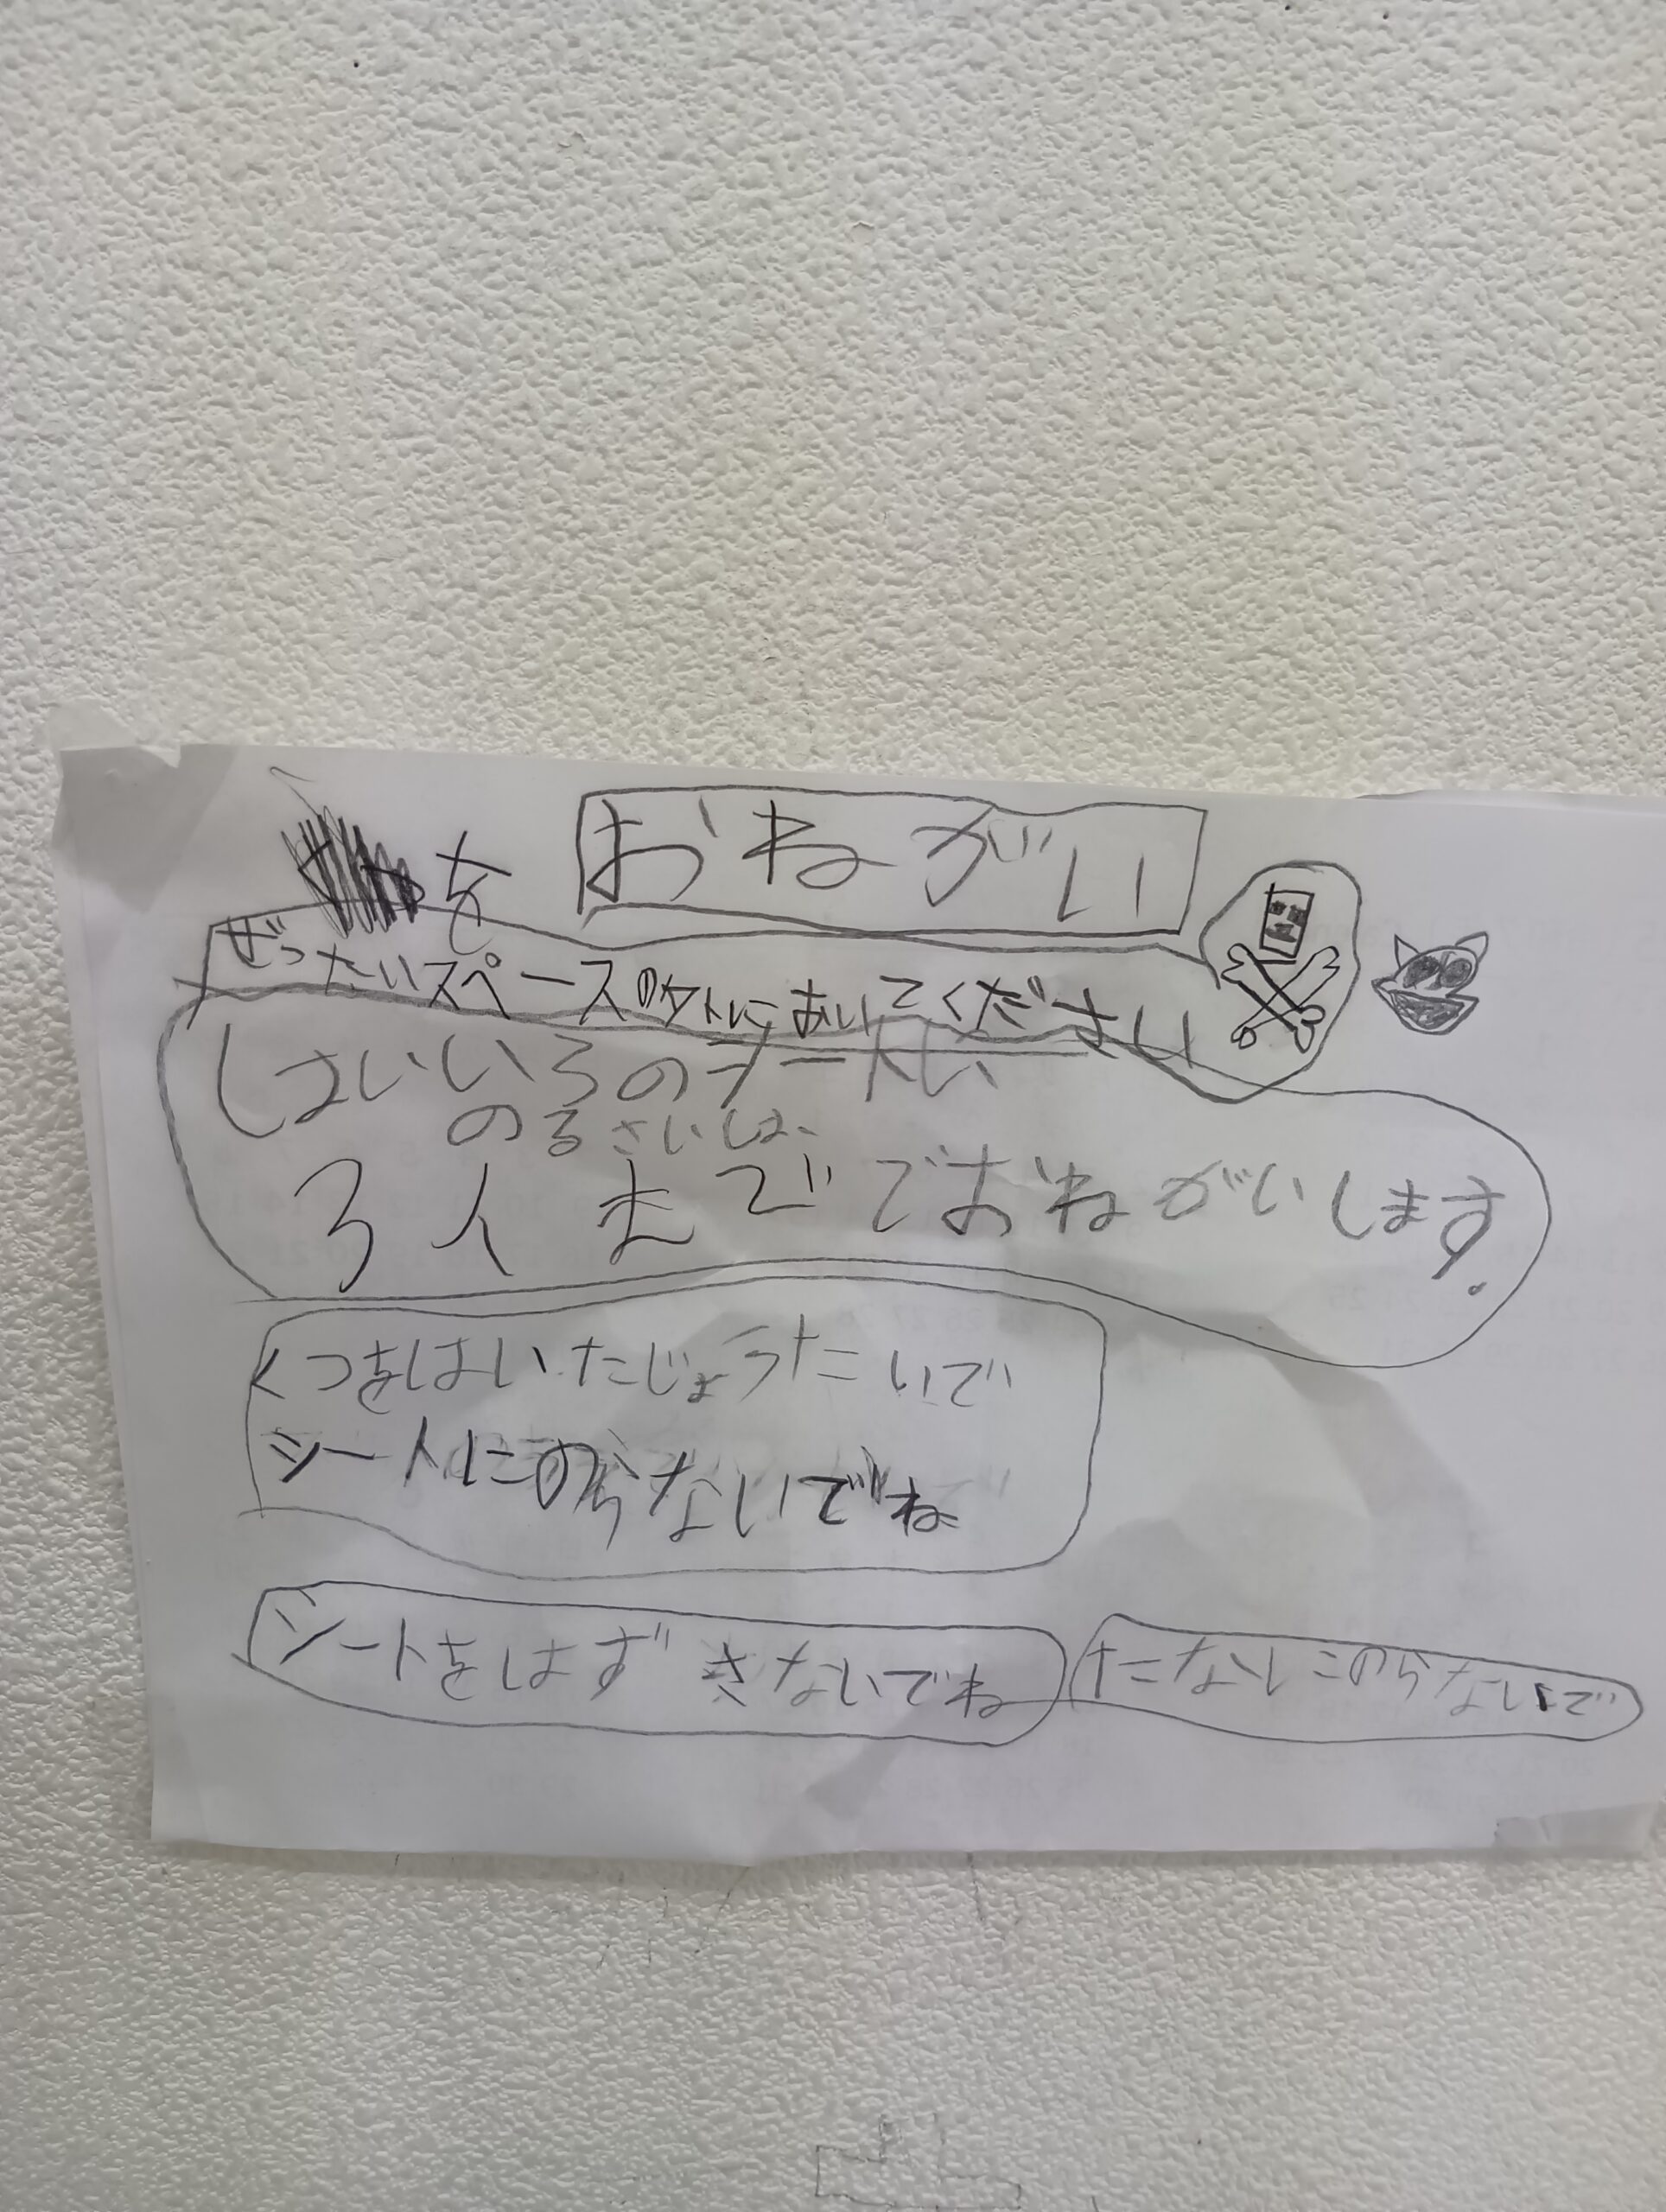 おねがい
を
ぜったいスペースのソトにおいてください
はいいろのシートに
のるさいは、
3人まででおねがいします.
くつをはいたじょうたいで
シートにのらないでね
シートをはずさないでね
たなにのらないで